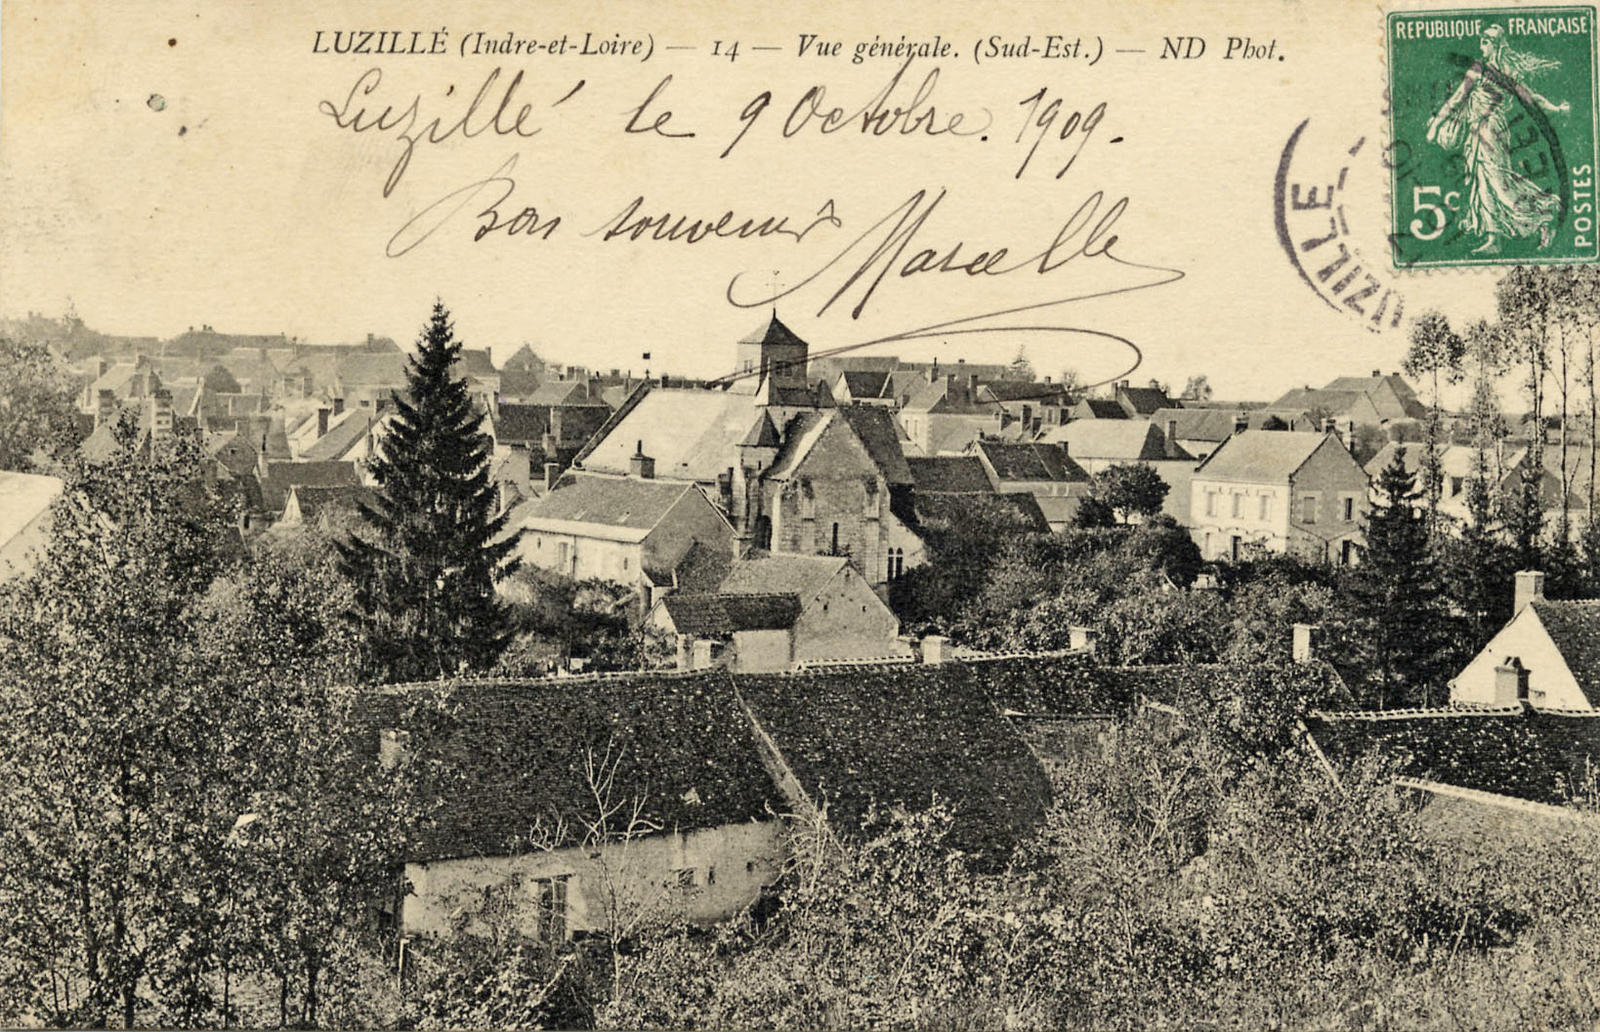 LUZILLÉ (Indre-et-Loire) — 14 — Vue générale. (Sud-Est.) — ND Phot.
Luzillé le 9 Octobre. 1909.
Bon souvenir
Marcelle
REPUBLIQUE FRANÇAISE
5c
POSTES
LUZILLE